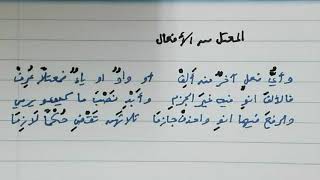 المعتل من الأفعال
وأيُّ فعلٍ آخرٌ منه أَلِفْ أو واوٌ او ياءٌ فمعتلًّا عُرِفْ
فالألفَ انوِ فيه غيرَ الجزمِ وأبدِ نَصْبَ ما كيدعو يرمي
والرفعَ فيهما انوِ واحذف جازما ثلاثَهن تَقْضِ حُكْمًا لازِمَا